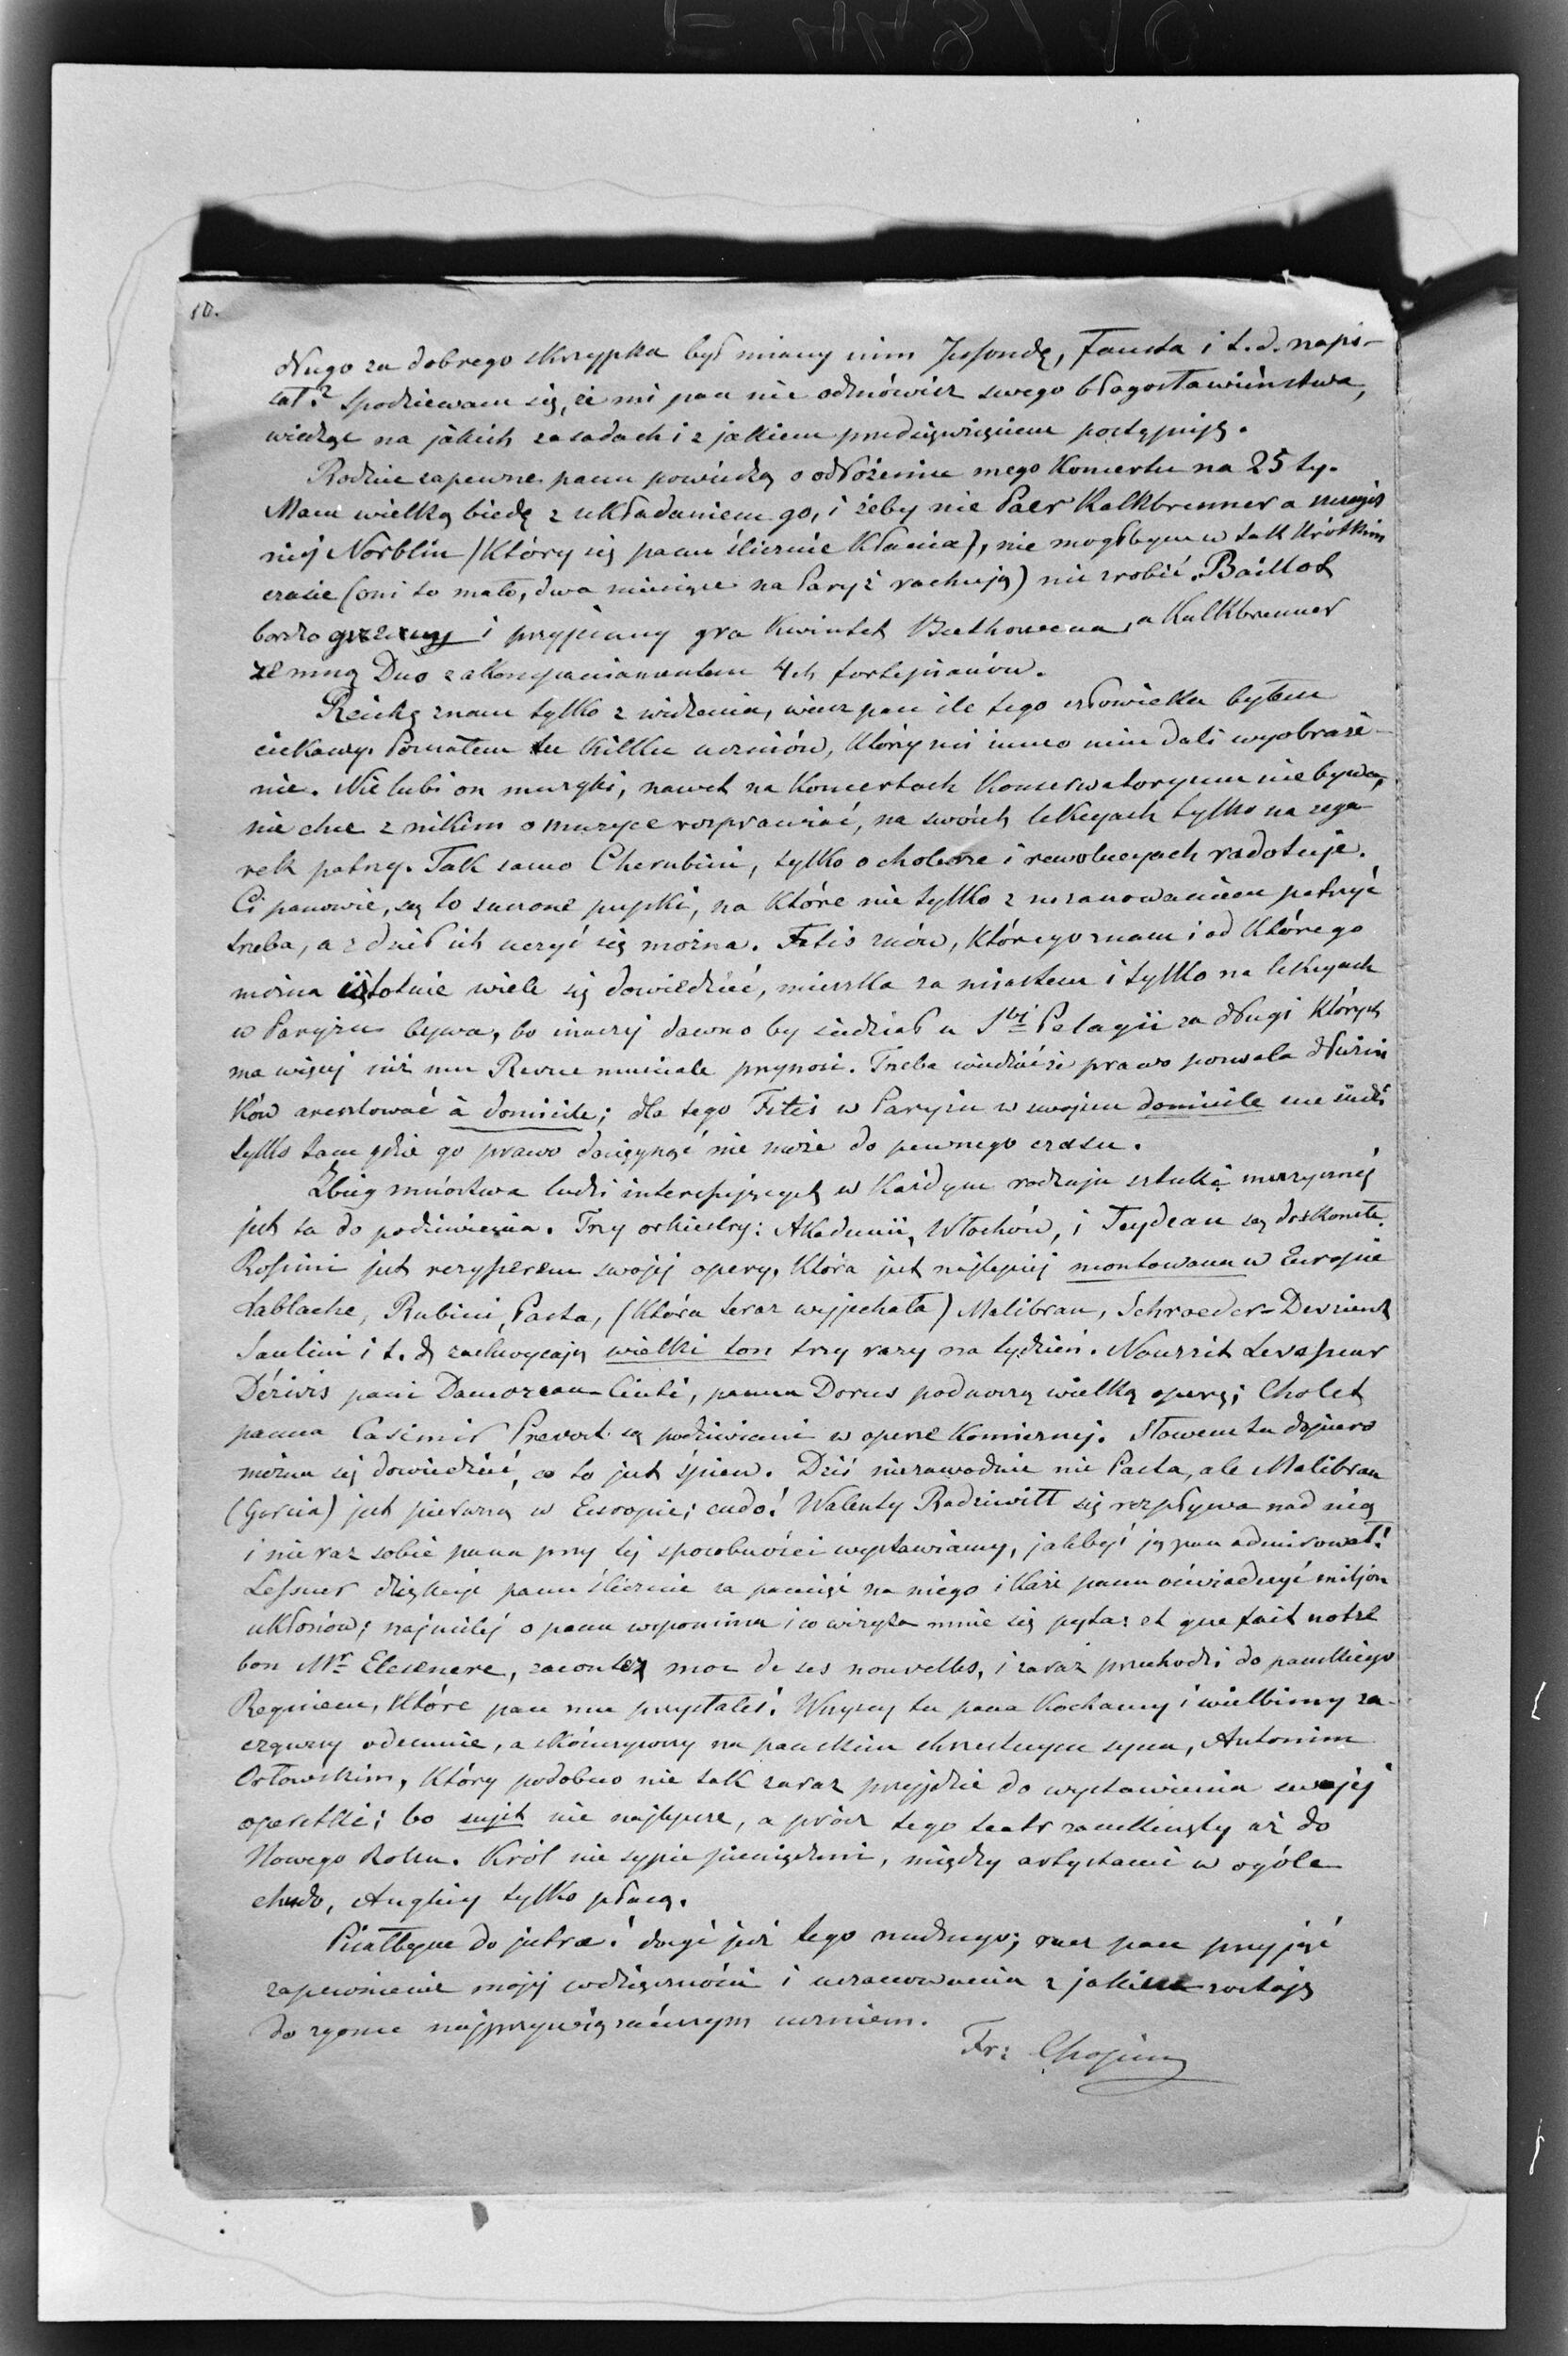 10.
długo za dobrego skrzypka był miany nim Jessondę, Fausta i t.d. napi-
sał? Spodziewam się, że mi pan nie odmówisz swego błogosławieństwa,
wiedząc na jakich zasadach i z jakiem przedsięwzięciem postępuję.
Rodzice zapewne panu powiedzą o odłożeniu mego Koncertu na 25 ty.
Mam wielką biedę z układaniem go, i żeby nie Paer Kalkbrenner a mianowi
niej Norblin (Który się panu ślicznie kłania), nie mogłbym w tak Krótkim
czasie (oni to mało, dwa miesiące na Paryż rachują) nic zrobić. Baillot
bardzo grzeczny i przyjemny gra Kwintet Beethowena, a Kalkbrenner
ze mną Duo z akompaniamentem 4ch fortepianów.
Reichę znam tylko z widzenia, wiesz pan ile tego człowieka byłem
ciekawy. Poznałem tu Kilku uczniów, Którzy mi inne o nim dali wyobraże-
nie. Nie lubi on muzyki, nawet na Koncertach Konserwatoryum nie bywa,
nie chce z nikim o muzyce rozprawiać, na swoich lekcyach tylko na zega-
rek patrzy. Tak samo Cherubini, tylko o cholerze i rewolucyach radotuje.
Ci panowie, są to suszone pupki, na Które nie tylko z uszanowaniem patrzyć
trzeba, a z dzieł ich uczyć się można. Fetis znów, Którego znam i od Którego
można istotnie wiele się dowiedzieć, mieszka za miastem i tylko na lekcyach
w Paryżu bywa, bo inaczej dawno by siedział u Stej Pelagii za długi Których
ma więcej niż mu Revue musicale przynosi. Trzeba wiedzieć że prawo pozwala dłużni
Ków aresztować à domicile; dla tego Fetis w Paryżu w swojem domicile nie siedzi
tylko tam gdzie go prawo dosięgnąć nie może do pewnego czasu.
Zbieg mnóstwa ludzi interesujących w Każdym rodzaju sztuki muzycznej
jest tu do podziwienia. Trzy orkiestry: Akademii, Włochów, i Feydeau są doskonałe.
Rossini jest reżyserem swojej opery, Która jest najlepiej montowana w Europie
Lablache, Rubini, Pasta, (Która teraz wyjechała) Malibran, Schroeder-Devrient
Santini i t. d. zachwycają wielki ton trzy razy na tydzień. Nourrit Levasseur
Dérivis pani Damoreau-Cinti, panna Dorus podnoszą wielką operę; Cholet
panna Casimir Prevost są podziwiani w operze Komicznej. Słowem tu dopiero
można się dowiedzieć, co to jest śpiew. Dziś niezawodnie nie Pasta, ale Malibran
(Garcia) jest pierwszą w Europie; cudo! Walenty Radziwiłł się rozpływa nad nią
i nie raz sobie pana przy tej sposobności wystawiamy, jakbyś ją pan admirował!
Lessuer dziękuje panu ślicznie za pamięć na niego i Każe panu oświadczyć miljon
ukłonów; najmilej o panu wspomina i co wizyta mnie się pyta: et que fait notre
bon Mr Elesenere, racontez moi de ses nouvelles, i zaraz przechodzi do pańskiego
Requiem, Które pan mu przysłałeś. Wszyscy tu pana Kochamy i wielbimy za-
cząwszy odemnie, a skończywszy na pańskim chrzestnym synu, Antonim
Orłowskim, Który podobno nie tak zaraz przyjdzie do wystawienia swojej
operetki; bo sujet nie najlepsze, a prócz tego teatr zamknięty aż do
Nowego Roku. Król nie sypie pieniędzmi, między artystami w ogóle
chudo, Anglicy tylko płacą.
Pisałbym do jutra! dosyć już tego nudnego; racz pan przyjąć
zapewnienie mojej wdzięczności i uszanowania z jakiem zostaję
do zgonu najprzywiązańszym uczniem.
Fr: Chopin